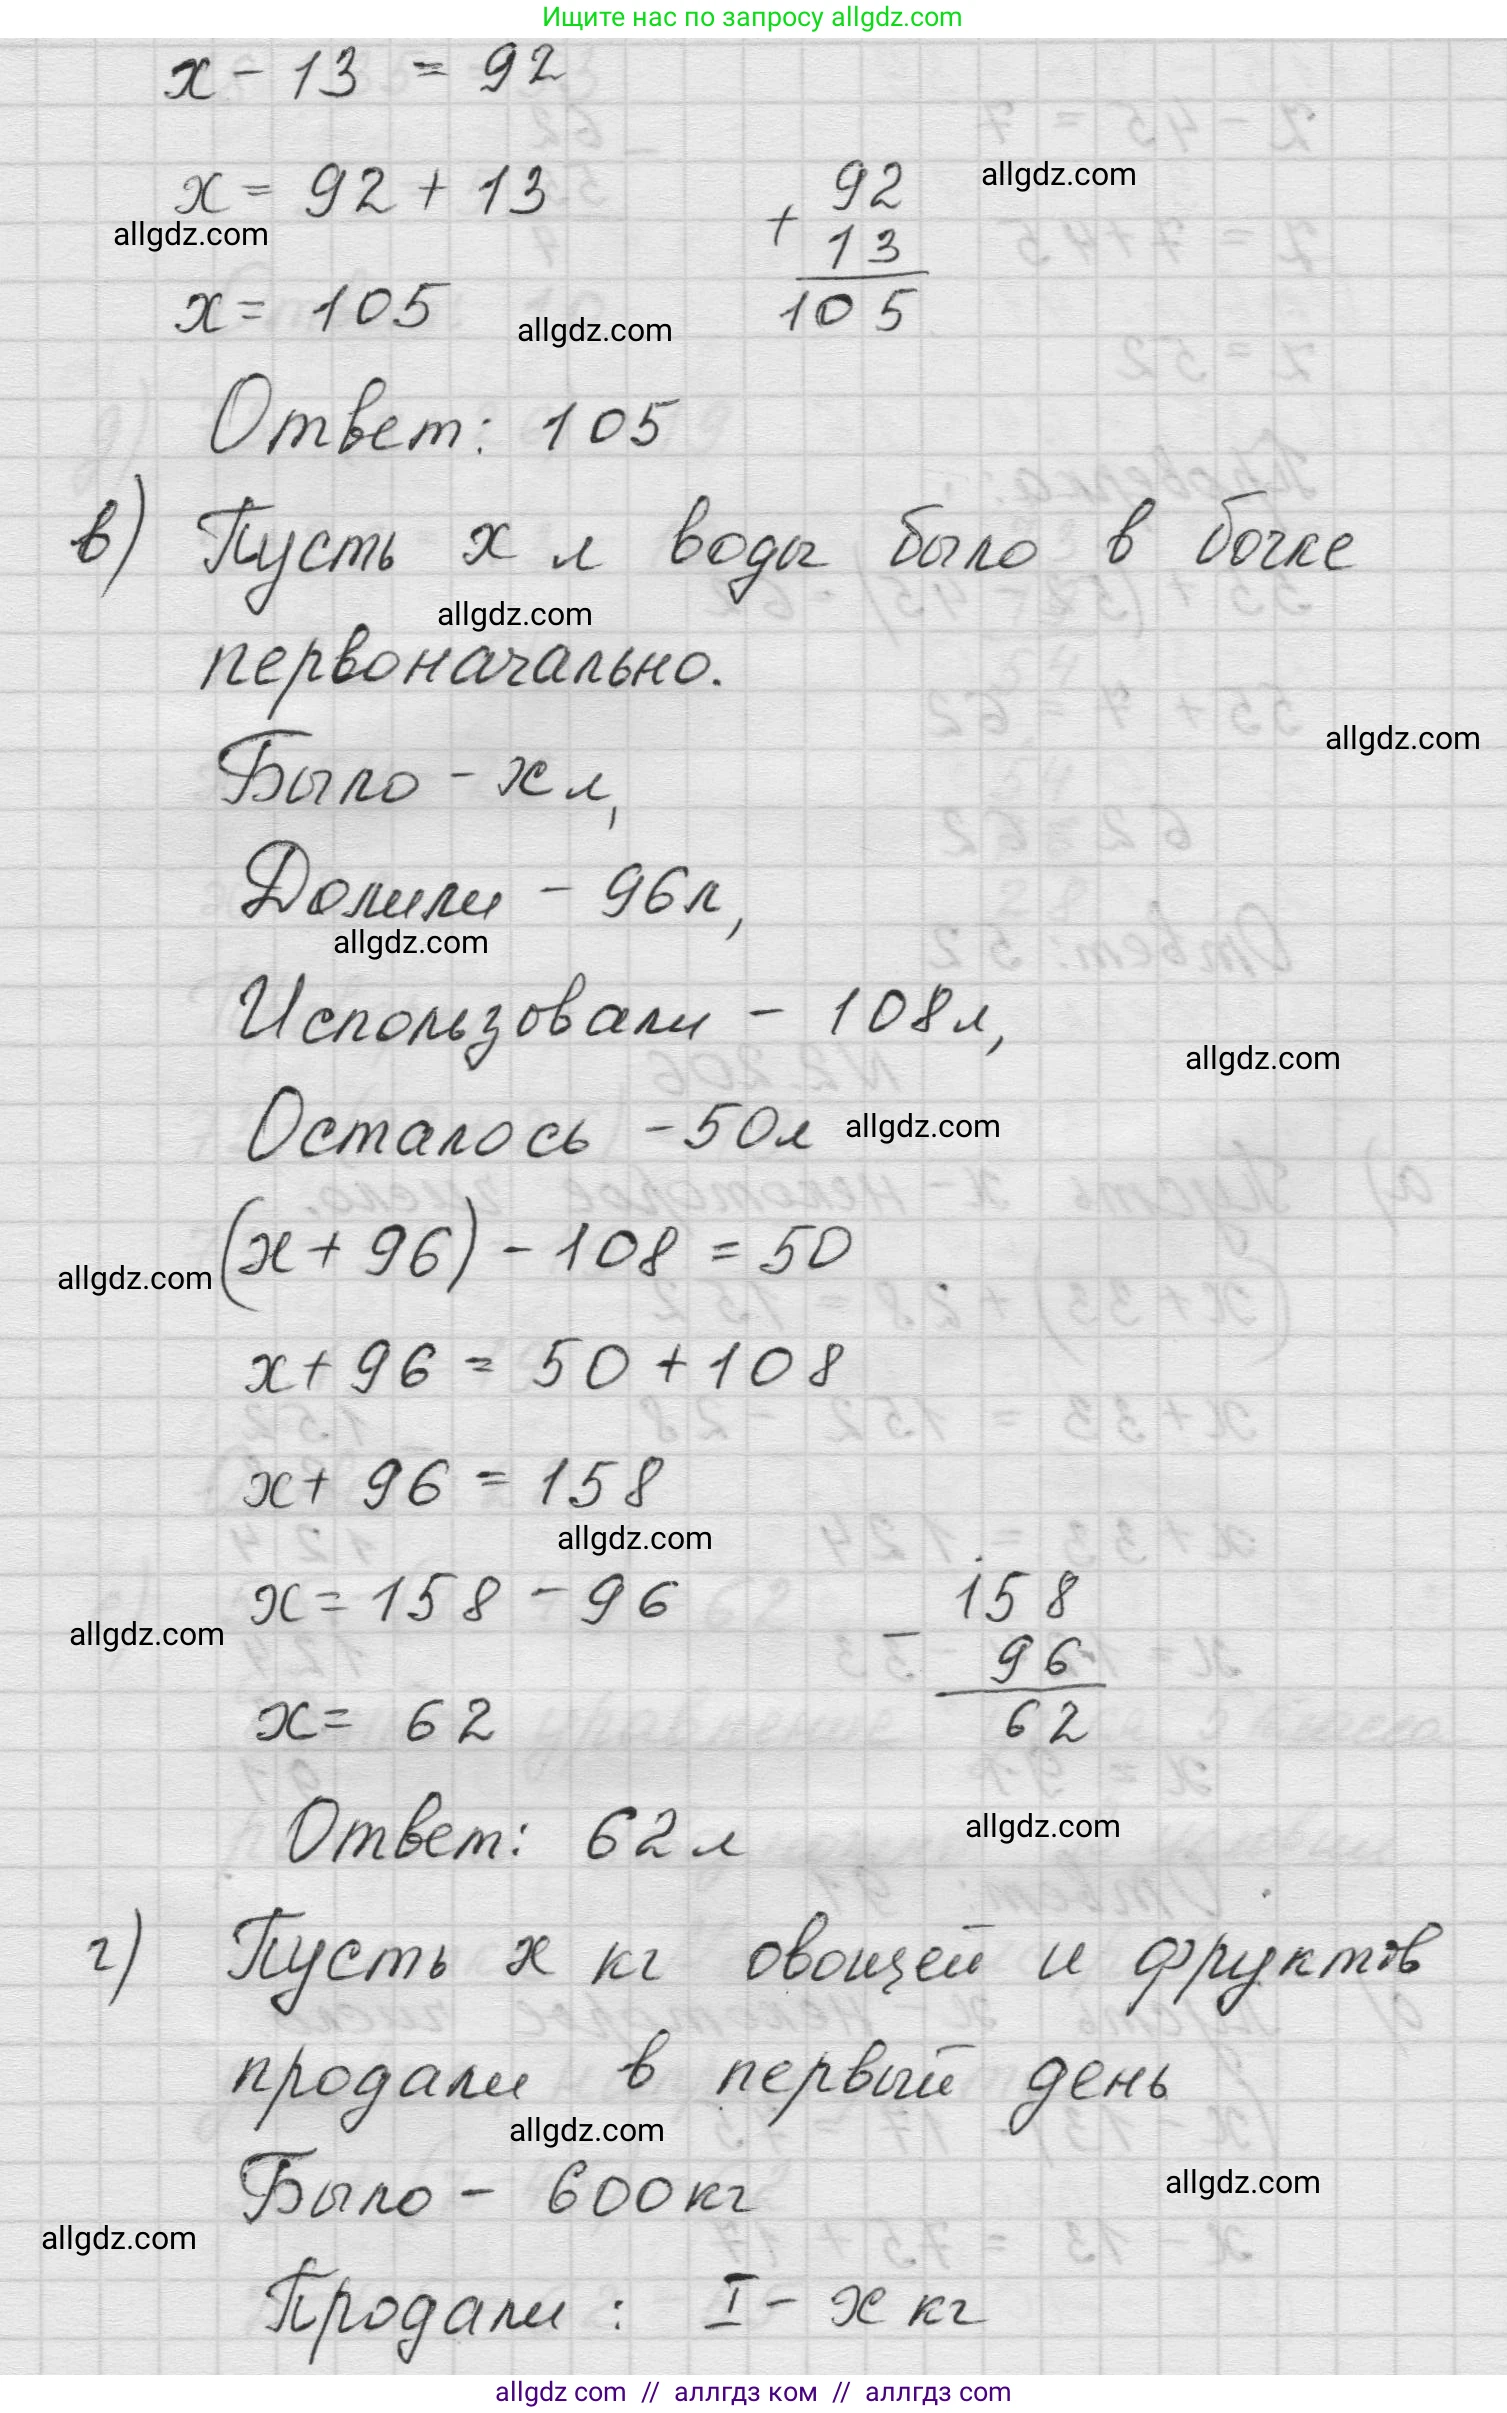 Ищите нас по запросу allgdz.com
x - 13 = 92
x = 92 + 13
92
allgdz.com
allgdz.com
+ 13
x = 105
105
allgdz.com
Ответ: 105
в) Пусть x л воды было в бочке
allgdz.com
первоначально.
allgdz.com
Было - x л,
Долили - 96л,
allgdz.com
Использовали - 108л,
allgdz.com
Осталось - 50л
allgdz.com
(x + 96) - 108 = 50
allgdz.com
x + 96 = 50 + 108
x + 96 = 158
allgdz.com
x = 158 - 96
158
allgdz.com
- 96
x = 62
62
Ответ: 62 л
allgdz.com
г) Пусть x кг овощей и фруктов
продали в первый день
allgdz.com
Было - 600кг
allgdz.com
allgdz.com
Продали: I - x кг
allgdz com // аллгдз ком // аллгdз com